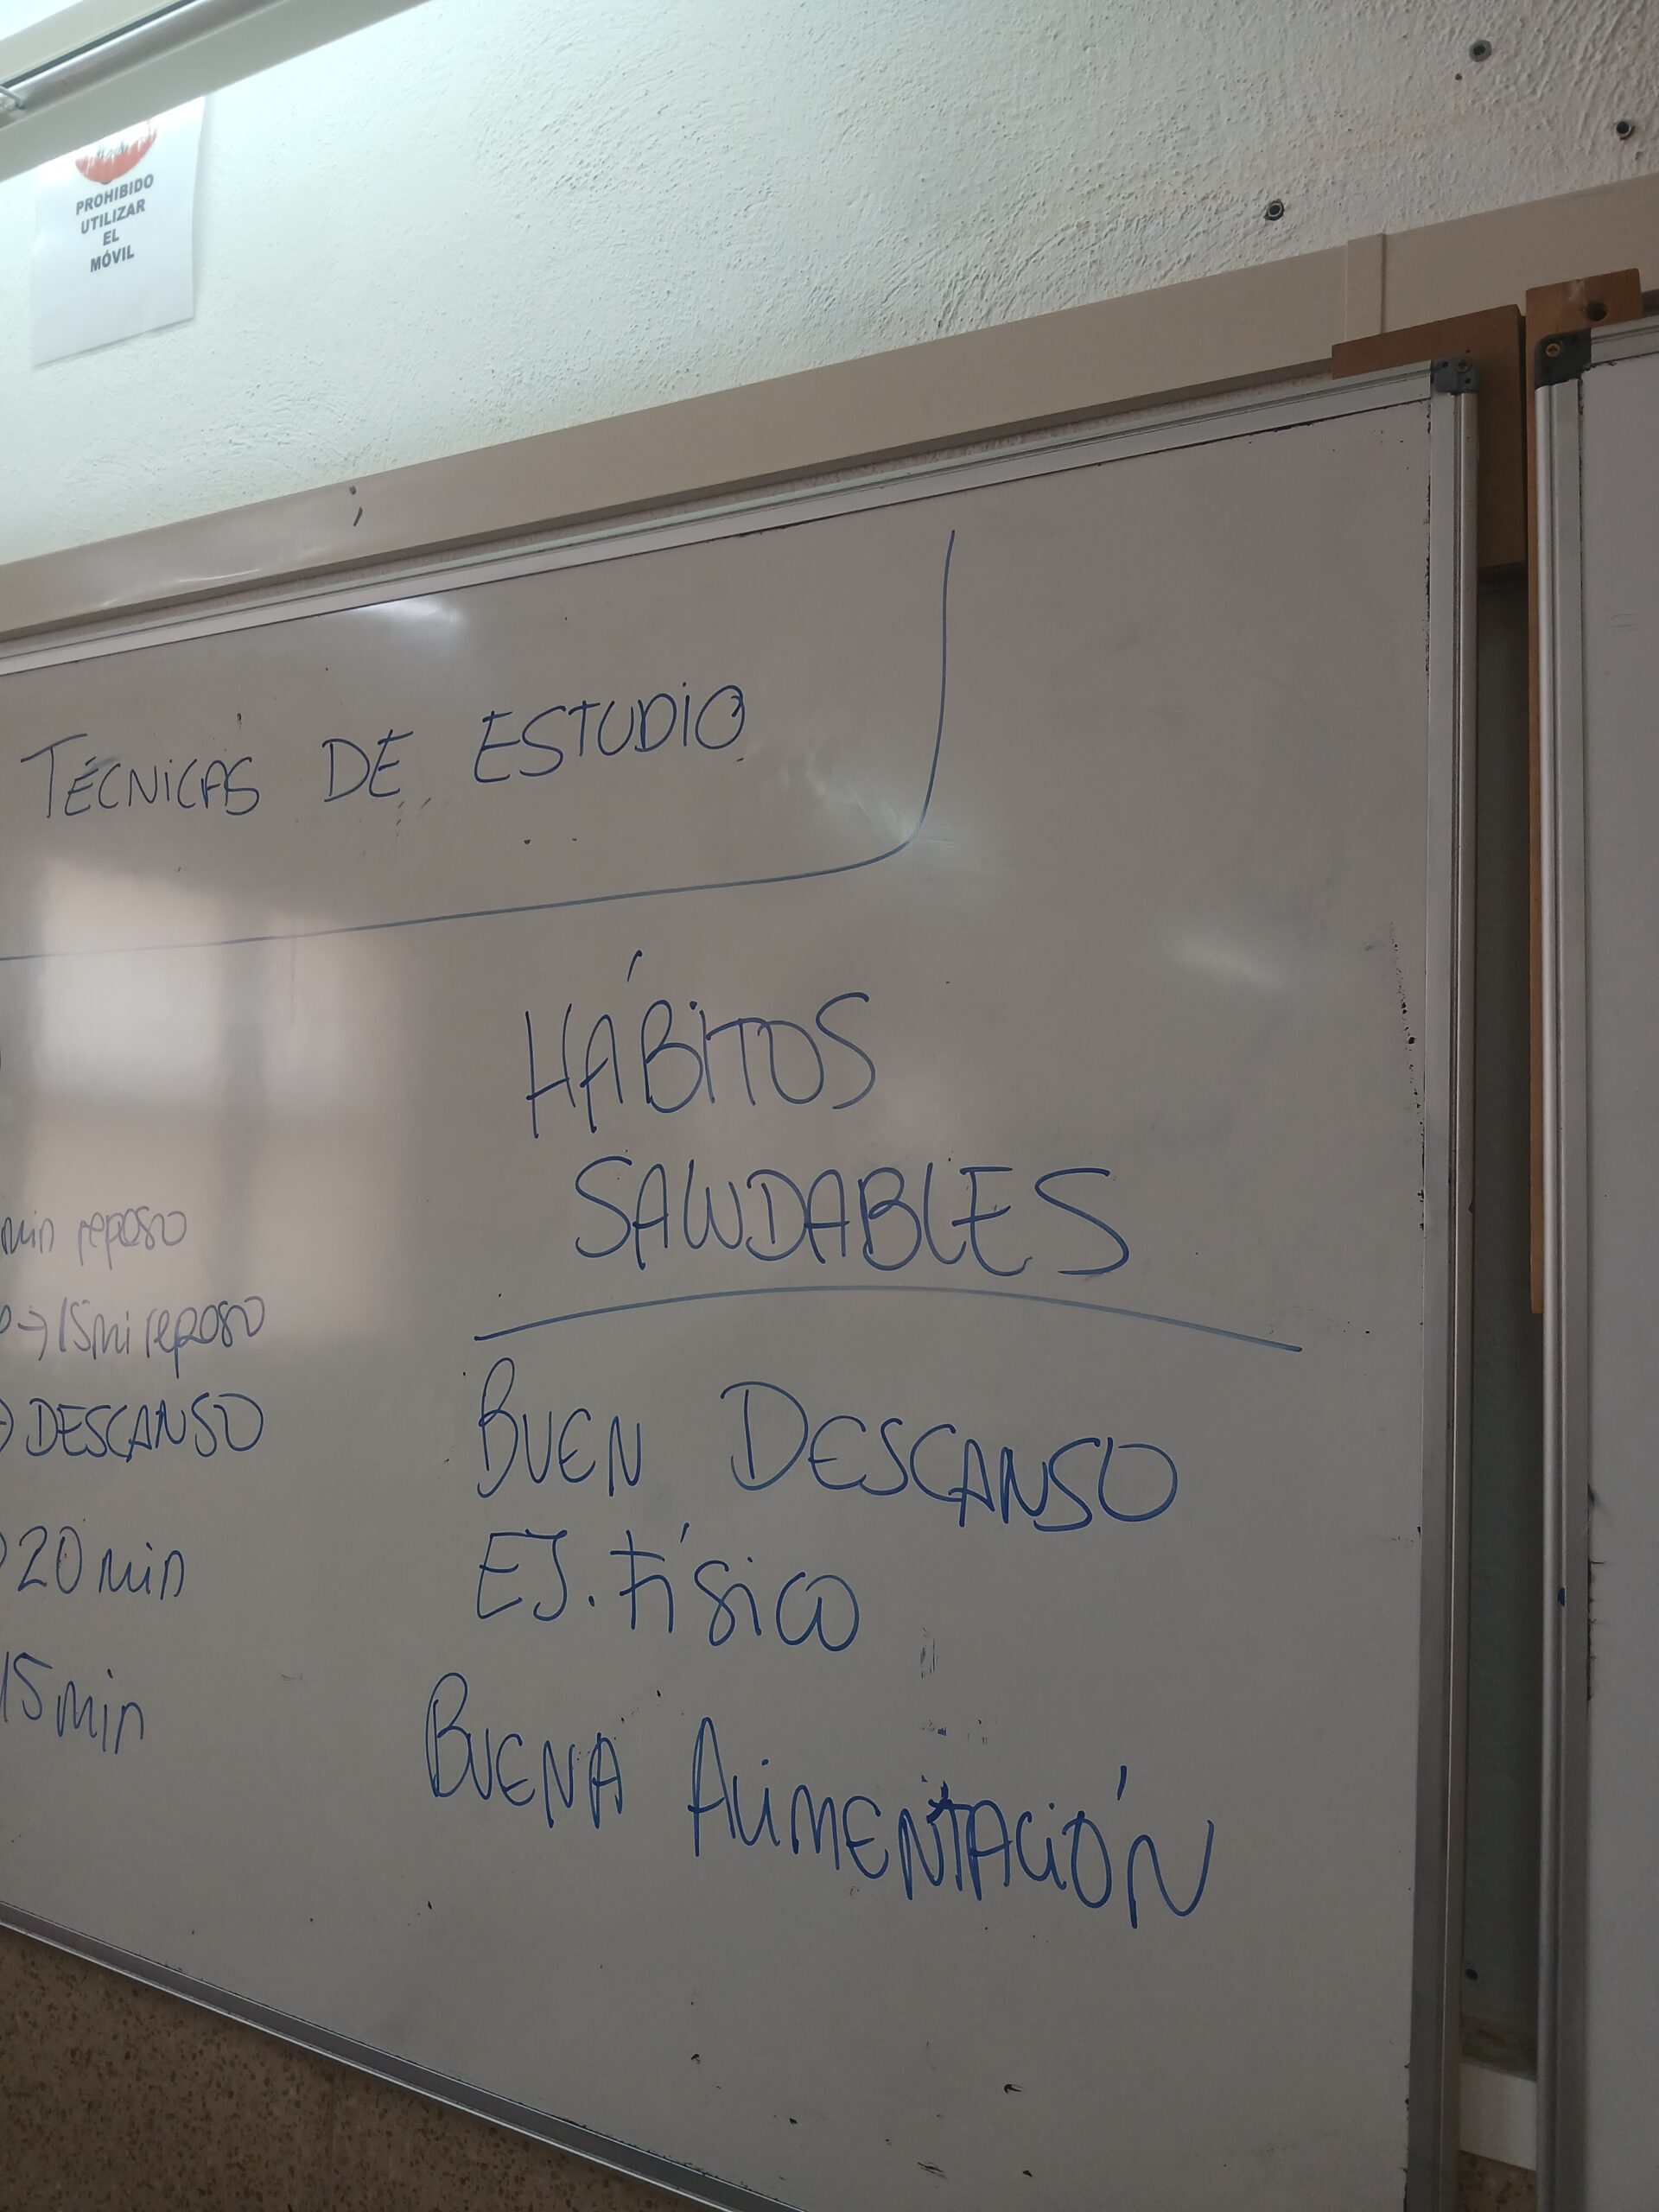 PROHIBIDO
UTILIZAR
EL
MÓVIL
TÉCNICAS DE ESTUDIO
HÁBITOS
SALUDABLES
min reposo
→ 15mi reposo
DESCANSO
20 min
15 min
BUEN DESCANSO
EJ. FÍSICO
BUENA ALIMENTACIÓN